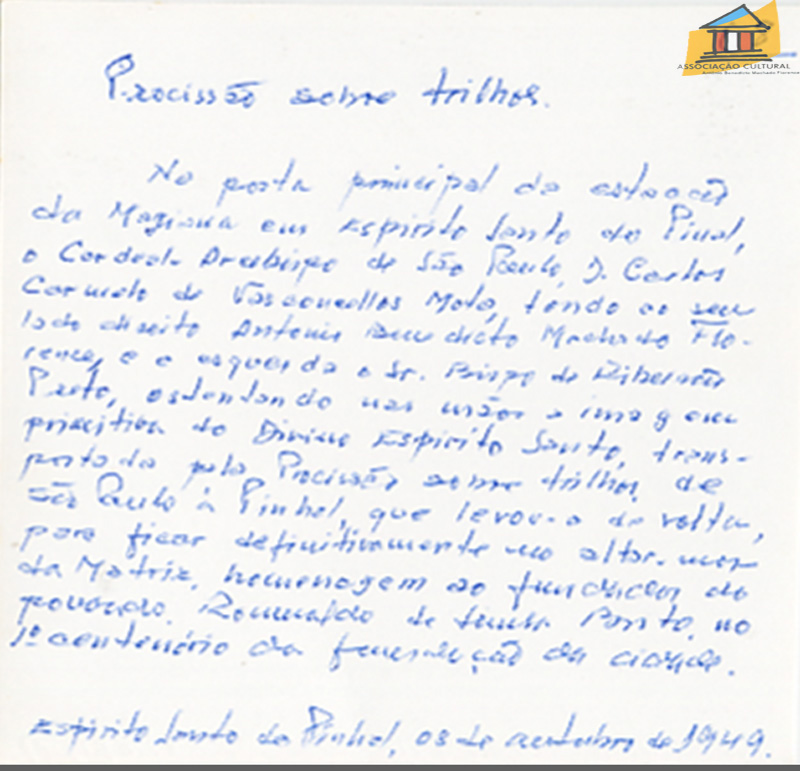 ASSOCIAÇÃO CULTURAL
Antonio Benedicto Machado Florence
Procissão sobre trilhos.
Na porta principal da estação
da Mogiana em Espirito Santo do Pinhal,
o Cardeal Arcebispo de São Paulo, D. Carlos
Carmelo de Vasconcellos Mota, tendo ao seu
lado direito Antonio Benedicto Machado Flo-
rence, e a esquerda o Sr. Bispo de Ribeirão
Preto, ostentando nas mãos a imagem
primitiva do Divino Espirito Santo, trans-
portada pela Procissão sobre trilhos, de
São Paulo à Pinhal, que levou-a de volta,
para ficar definitivamente no altar-mor
da Matriz, homenagem ao fundador do
povoado, Romualdo de Souza Brito, no
1º centenário da fundação da cidade.
Espirito Santo do Pinhal, 08 de outubro de 1949.